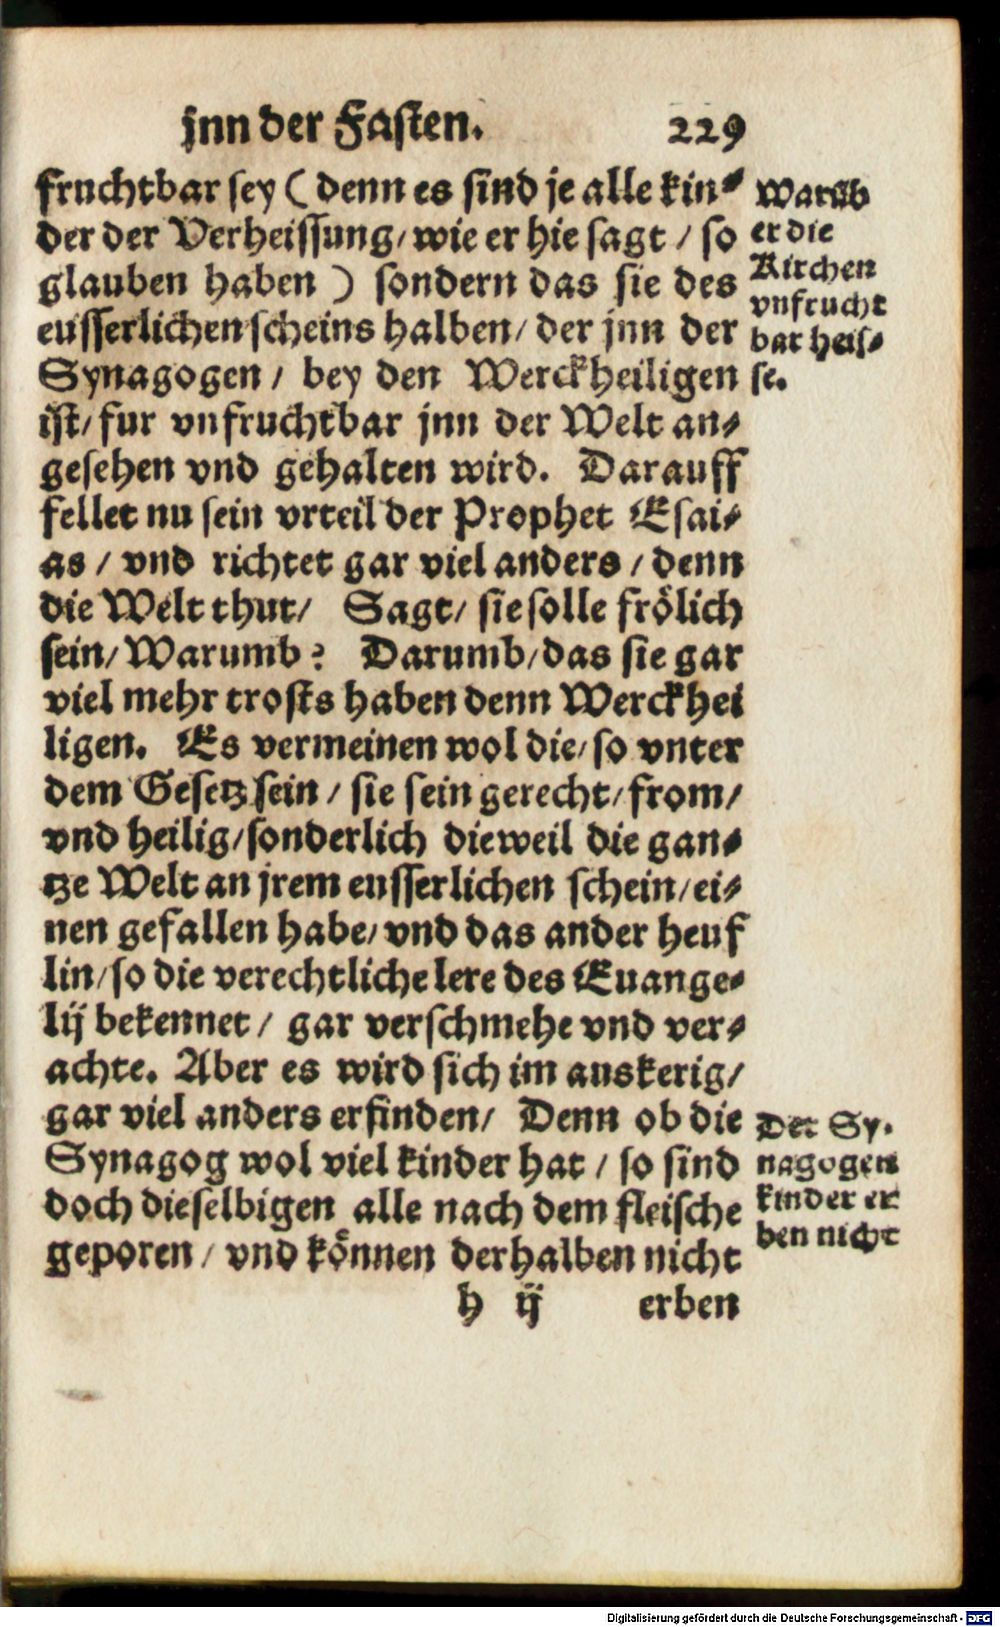 jnn der Fasten. 229
fruchtbar sey ( denn es sind je alle kin⸗
der der Verheissung/ wie er hie sagt / so
glauben haben ) sondern das sie des
eusserlichen scheins halben/ der jnn der
Synagogen / bey den Werckheiligen
ist/ fur vnfruchtbar jnn der Welt an⸗
gesehen vnd gehalten wird. Darauff
fellet nu sein vrteil der Prophet Esai⸗
as / vnd richtet gar viel anders / denn
die Welt thut/ Sagt/ sie solle frölich
sein/ Warumb? Darumb/ das sie gar
viel mehr trosts haben denn Werckhei
ligen. Es vermeinen wol die/ so vnter
dem Gesetz sein / sie sein gerecht/ from/
vnd heilig/ sonderlich dieweil die gan⸗
tze Welt an jrem eusserlichen schein/ ei⸗
nen gefallen habe/ vnd das ander heuf
lin/ so die verechtliche lere des Euange⸗
lij bekennet / gar verschmehe vnd ver⸗
achte. Aber es wird sich im auskerig/
gar viel anders erfinden/ Denn ob die
Synagog wol viel kinder hat / so sind
doch dieselbigen alle nach dem fleische
geporen / vnd können derhalben nicht
h ij erben
Warūb
er die
Kirchen
vnfrucht
bar heis⸗
se.
Der Sy⸗
nagogen
kinder er
ben nicht
Digitalisierung gefördert durch die Deutsche Forschungsgemeinschaft - DFG